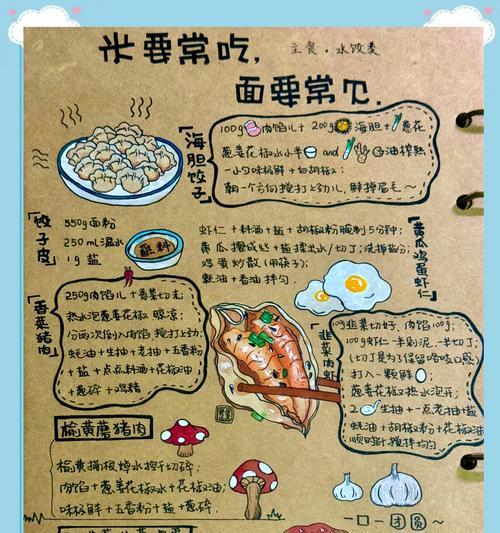 米要常吃，
主食·水饺类
面要常见.
「海胆饺子」
100g肉馅儿+200g海胆+葱花
葱姜花椒水小半 and 油榨熟
一小勺味极鲜+白胡椒；
朝一个方向搅打上劲儿，鲜掉眉毛~
「饺子皮」
550g面粉
250mL温水
1g 盐
蘸料
「黄瓜鸡蛋虾仁」
虾仁+料酒+盐+胡椒粉腌制5分钟；
黄瓜擦成丝+盐揉出水/切丁；
鸡蛋炒散（用筷子）；
蚝油+香油拌匀.
「香菜猪肉」
250g肉馅儿+香菜切末；
热水泡葱姜花椒 晾凉；
分两次倒入肉馅 搅打上劲；
蚝油+生抽+老抽+五香粉
+盐+点点料酒+花椒油
+葱碎+鸡精
「韭菜肉虾」
韭菜切好，肉馅100g；
100g虾仁一半剁泥，一半切丁；
（切丁是为了保留咯吱口感
打入一颗鲜
葱姜花椒以热水泡开；
2 生抽+一点老抽+盐
蚝油+胡椒粉+花椒油
顺时针搅拌均匀.
榆黄蘑猪肉
榆黄摘根焯水控干切碎；
肉馅+葱姜花椒水+花椒油；
味极鲜+五香粉+盐+葱碎.
一口一团圆~